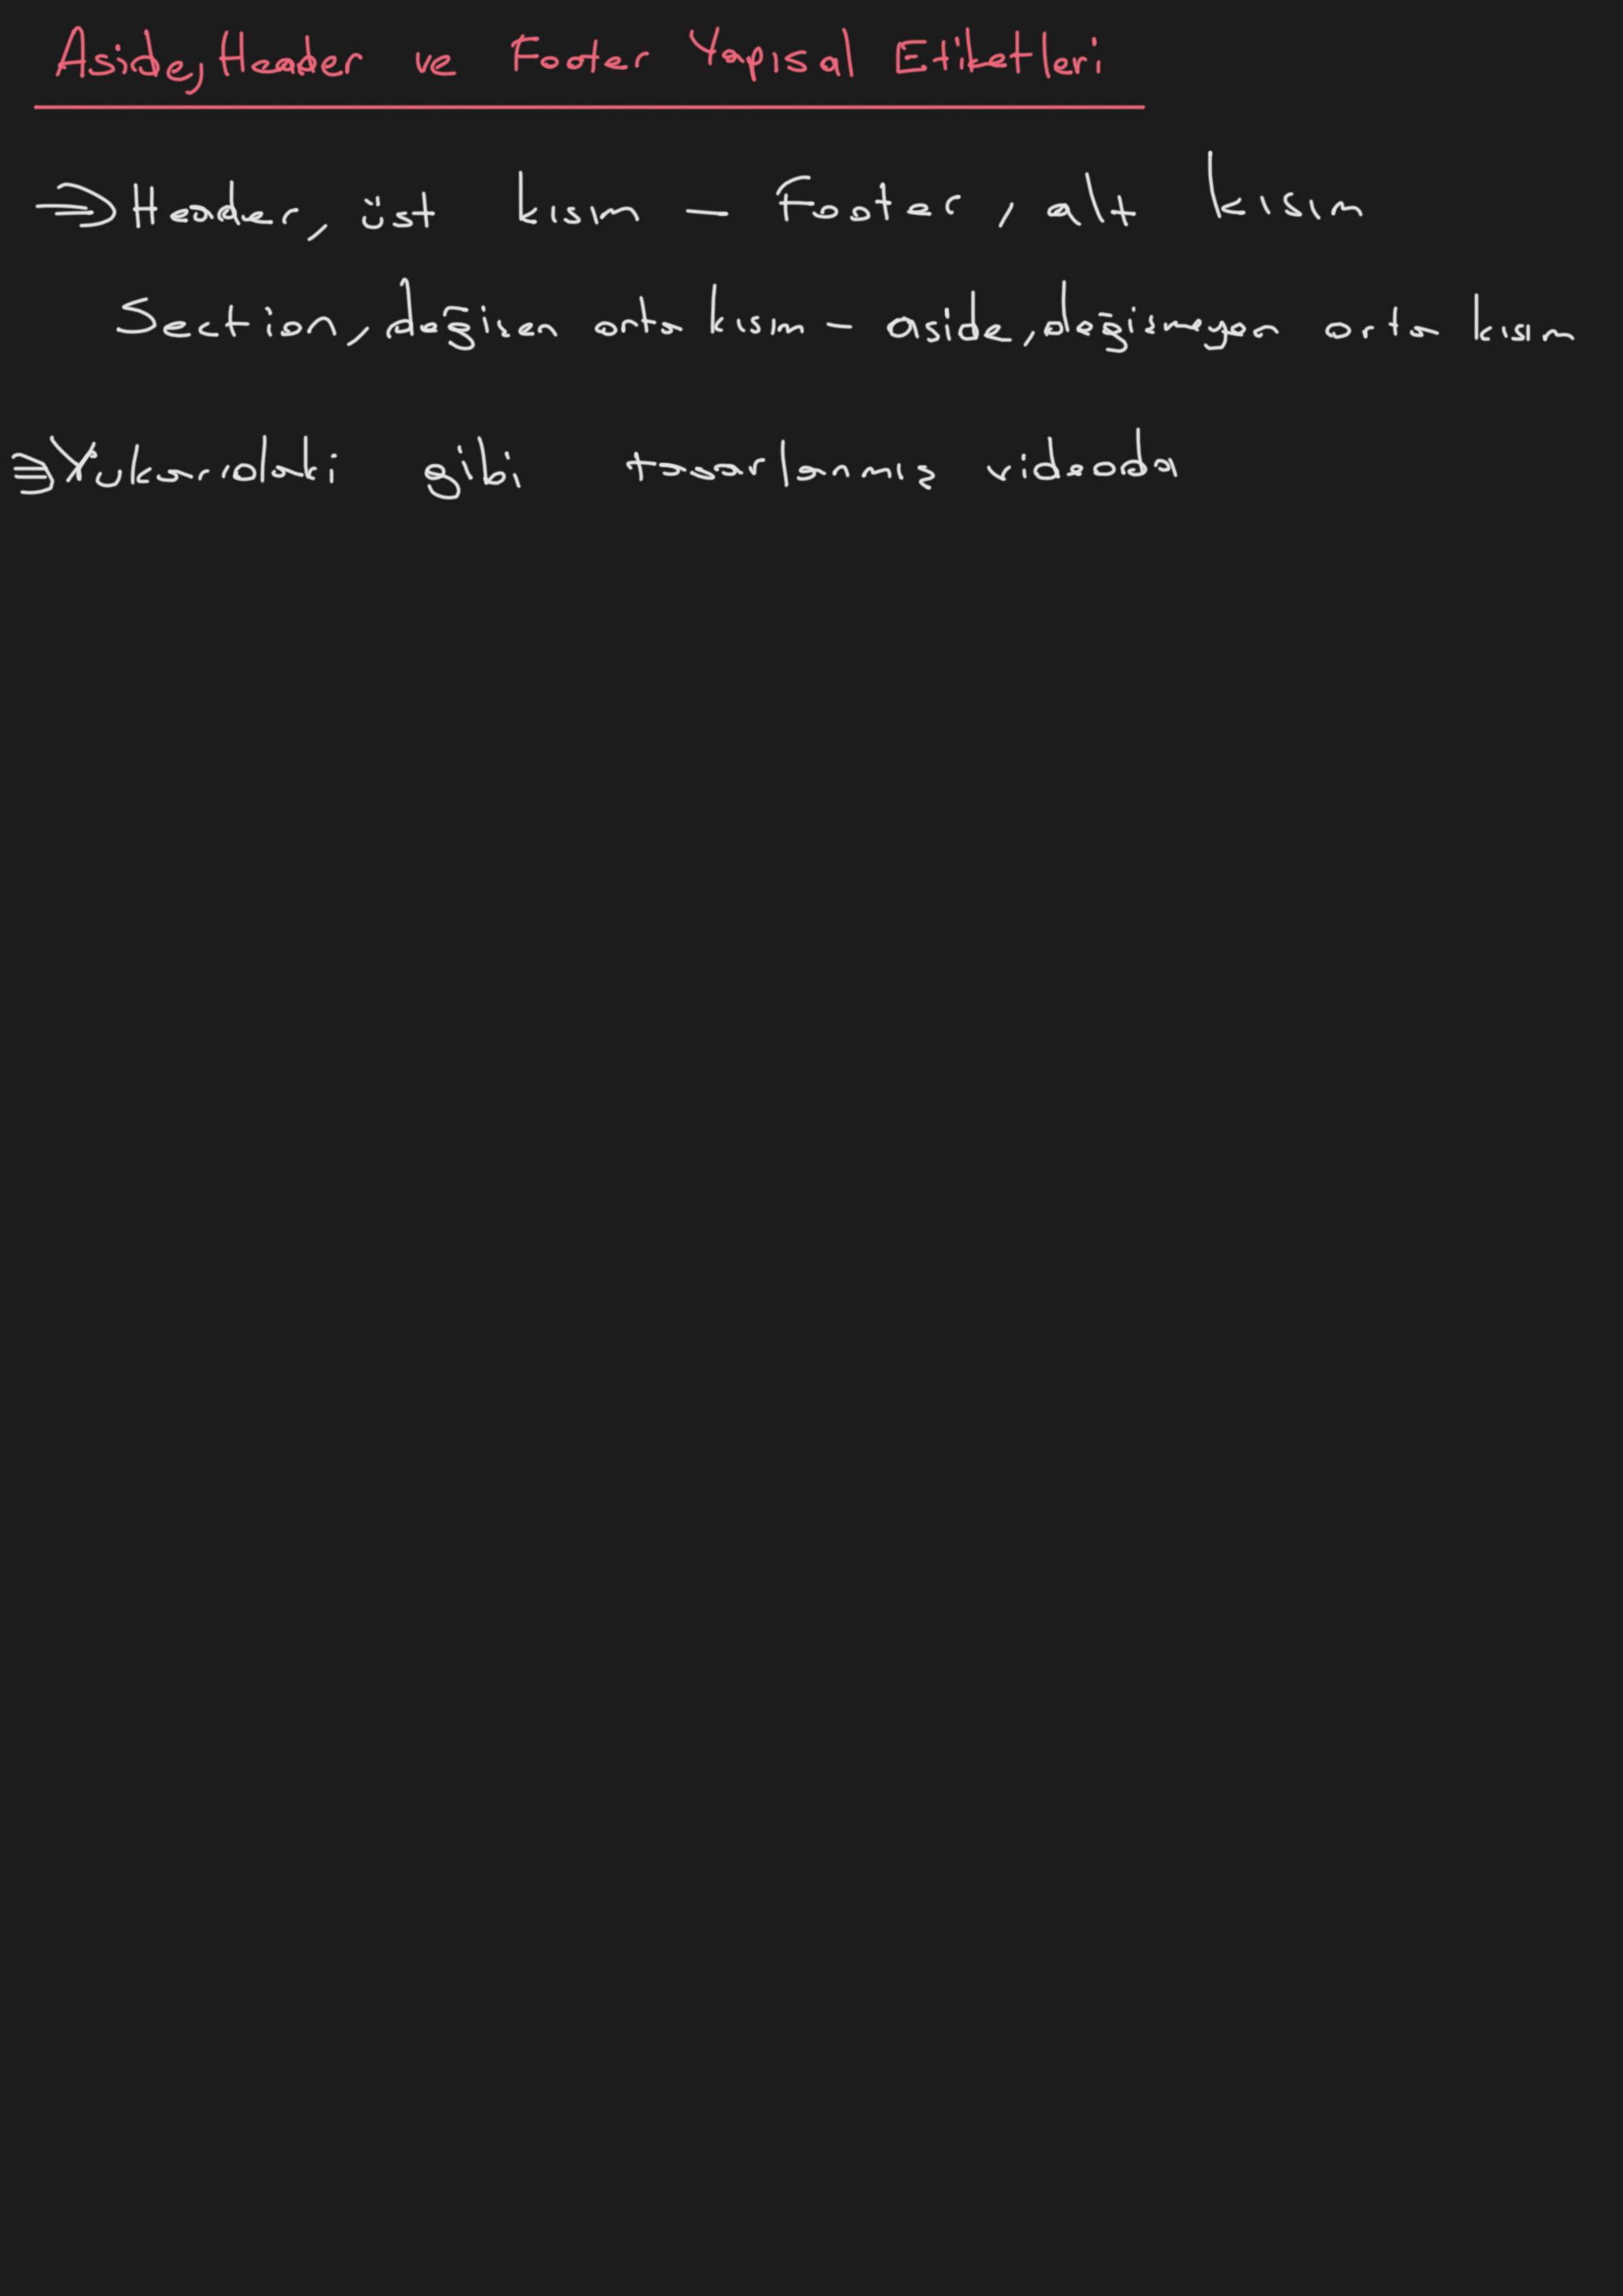 Aside, Header ve Footer Yapısal Etiketleri
⇒ Header, üst kısım — Footer, alt kısım
Section, değişen orta kısım — aside, değişmeyen orta kısım
⇒ Yukarıdaki gibi tasarlanmış videoda